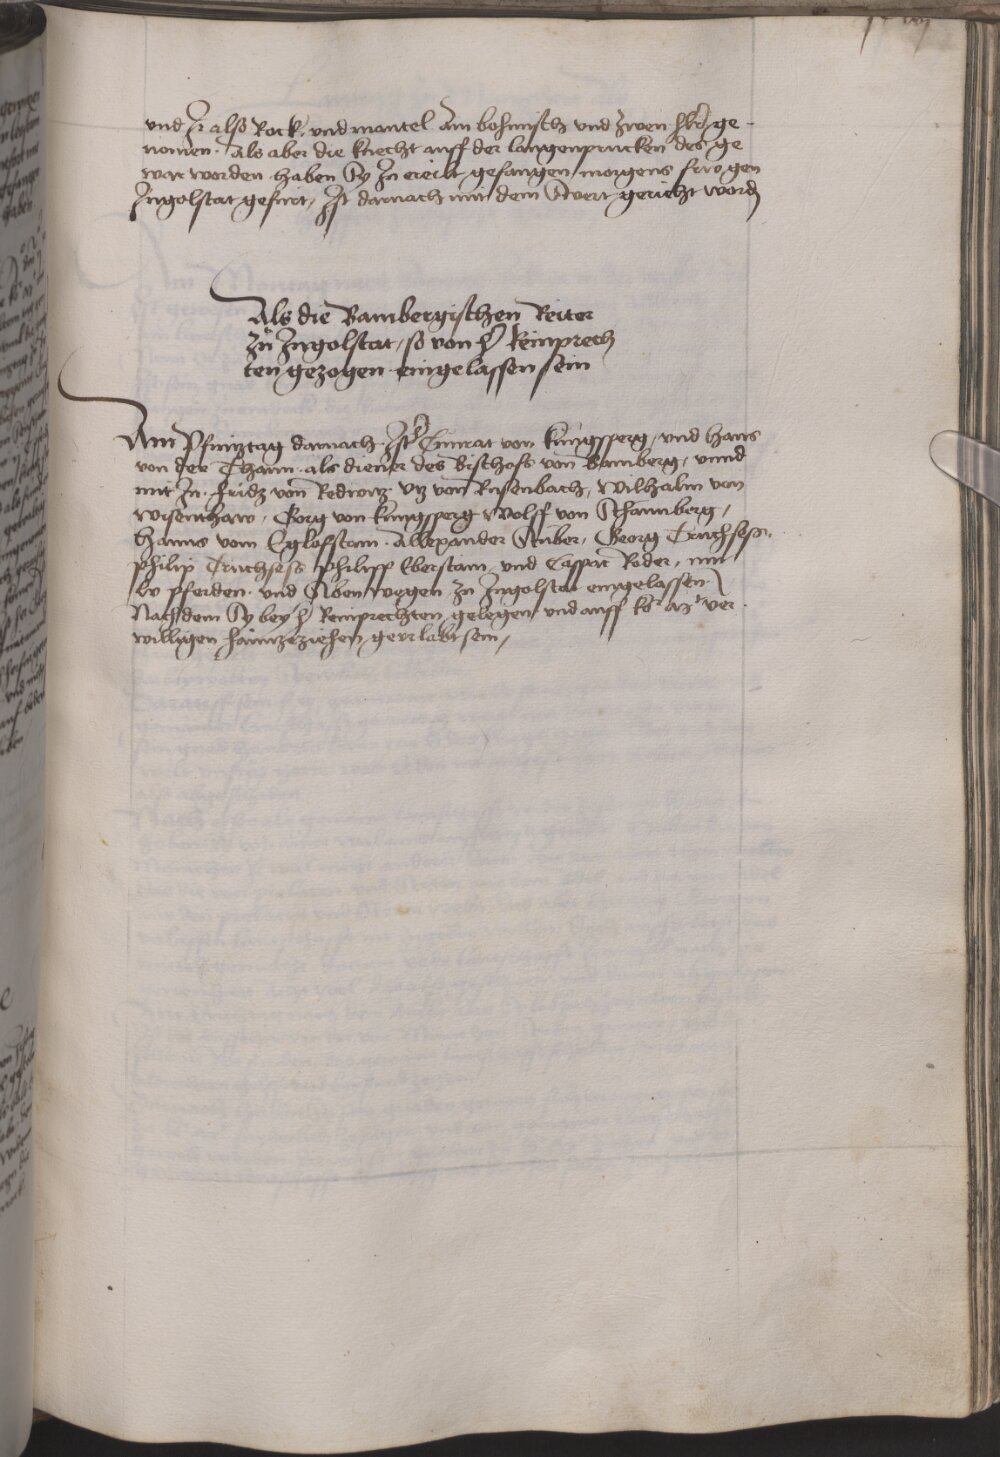 und Ir also Rock, und mantel Am bohmisch und zwen ge-
nomen. Als aber die knecht auff der langenprucken des ge
war worden haben Sy In ereilt gefangen morgens frue gen
Ingolstat gefurt, Ist darnach mit dem Swert gericht word
Als die Bambergischen Reiter
zu Ingolstat, so von h Reinprech
ten gezogen eingelassen sein
Am Pfintztag darnach Ist h Cunrat von kungsperg, und hans
von der Thann als diener des Bischofs von Bamberg, unnd
mit In. Fridz von Redwitz Utz von Rusenbach, Wilhalm von
Wisenthaw, Gorg von kungsperg Wolff von Schaunberg,
Hanns vom Eglofstain. Allexander Stuber, Georg Truchsess.
Philip Truchsess Philipp Eberstain und Caspar Roder, mit
lv pferden. und siben wegen zu Ingolstat eingelassen
Nachdem Sy bey h Reinprechten gelegen und auff ko ver
willigen haimzeziehen, geurlabt sein,